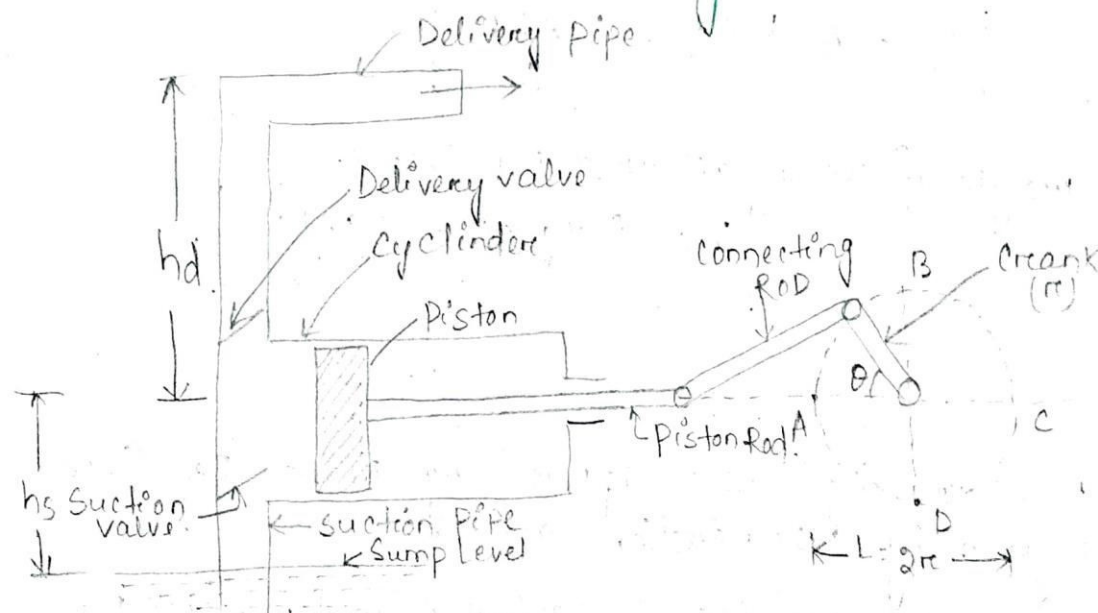 Delivery pipe
Delivery valve
Cyclinder
hd.
connecting
ROD
B
Creank
(r)
Piston
θ
A
C
Piston Rod
hs
Suction
valve
suction pipe
Sump level
D
L = 2r